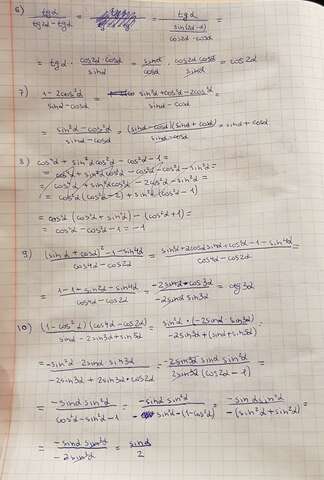 6) tgα / (tg2α - tgα) = = tgα / (sin(2α-α) / (cos2α·cosα)) =
= tgα · (cos2α·cosα) / sinα = sinα / cosα · (cos2α cosα) / sinα = cos2α
7) (1-2cos²α) / (sinα-cosα) = (sin²α+cos²α-2cos²α) / (sinα-cosα) =
= (sin²α-cos²α) / (sinα-cosα) = (sinα-cosα)(sinα+cosα) / (sinα-cosα) = sinα+cosα
8) cos⁴α + sin²α cos²α - cos²α - 1 =
= cos⁴α + sin²α cos²α - cos²α - cos²α - sin²α =
= cos⁴α + sin²α cos²α - 2cos²α - sin²α =
= cos²α (cos²α-2) + sin²α (cos²α-1)
= cos²α (cos²α + sin²α) - (cos²α+1) =
= cos²α - cos²α - 1 = -1
9) ((sinα + cosα)² - 1 - sin4α) / (cos4α - cos2α) = (sin²α + 2cosα sinα + cos²α - 1 - sin4α) / (cos4α - cos2α) =
= (1-1+sin2α - sin4α) / (cos4α - cos2α) = (-2sinα · cos3α) / (-2sinα sin3α) = ctg3α
10) (1-cos²α)(cos4α-cos2α) / (sinα - 2sin3α + sin5α) = sin²α · (-2sinα · sin3α) / (-2sin3α + (sinα + sin5α)) =
= (-sin²α · 2sinα · sin3α) / (-2sin3α + 2sin3α · cos2α) = (-2sin3α sinα sin²α) / (2sin3α (cos2α - 1)) =
= (-sinα sin²α) / (cos²α - sin²α - 1) = (-sinα sin²α) / (-sin²α - (1-cos²α)) = (-sinα sin²α) / (-(sin²α + sin²α)) =
= (-sinα sin²α) / (-2sin²α) = sinα / 2